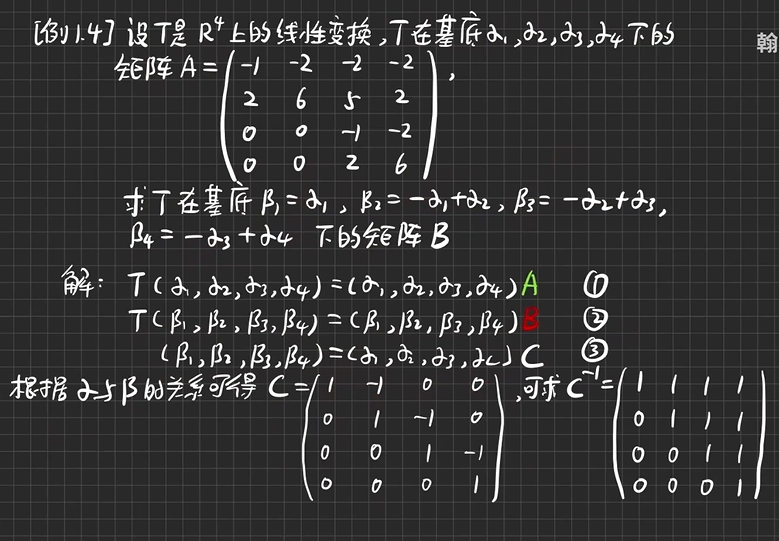 [例1.4] 设T是 R⁴上的线性变换,T在基底α₁,α₂,α₃,α₄下的
翰
矩阵 A = ( -1 -2 -2 -2 ) ,
2 6 5 2
0 0 -1 -2
0 0 2 6
求T在基底 β₁=α₁, β₂=-α₁+α₂, β₃=-α₂+α₃,
β₄=-α₃+α₄ 下的矩阵 B
解: T(α₁,α₂,α₃,α₄)=(α₁,α₂,α₃,α₄)A ①
T(β₁,β₂,β₃,β₄)=(β₁,β₂,β₃,β₄)B ②
(β₁,β₂,β₃,β₄)=(α₁,α₂,α₃,α₄)C ③
根据α与β的关系可得 C=( 1 -1 0 0 ) ,可求 C⁻¹=( 1 1 1 1 )
0 1 -1 0 0 1 1 1
0 0 1 -1 0 0 1 1
0 0 0 1 0 0 0 1